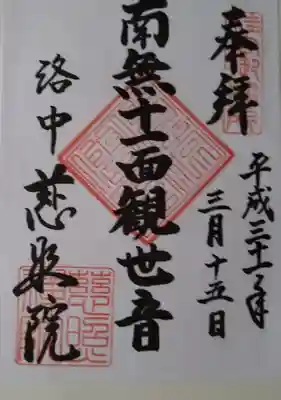 奉拝
平成三十一年
三月十五日
南無十一面観世音
洛中 慈照院